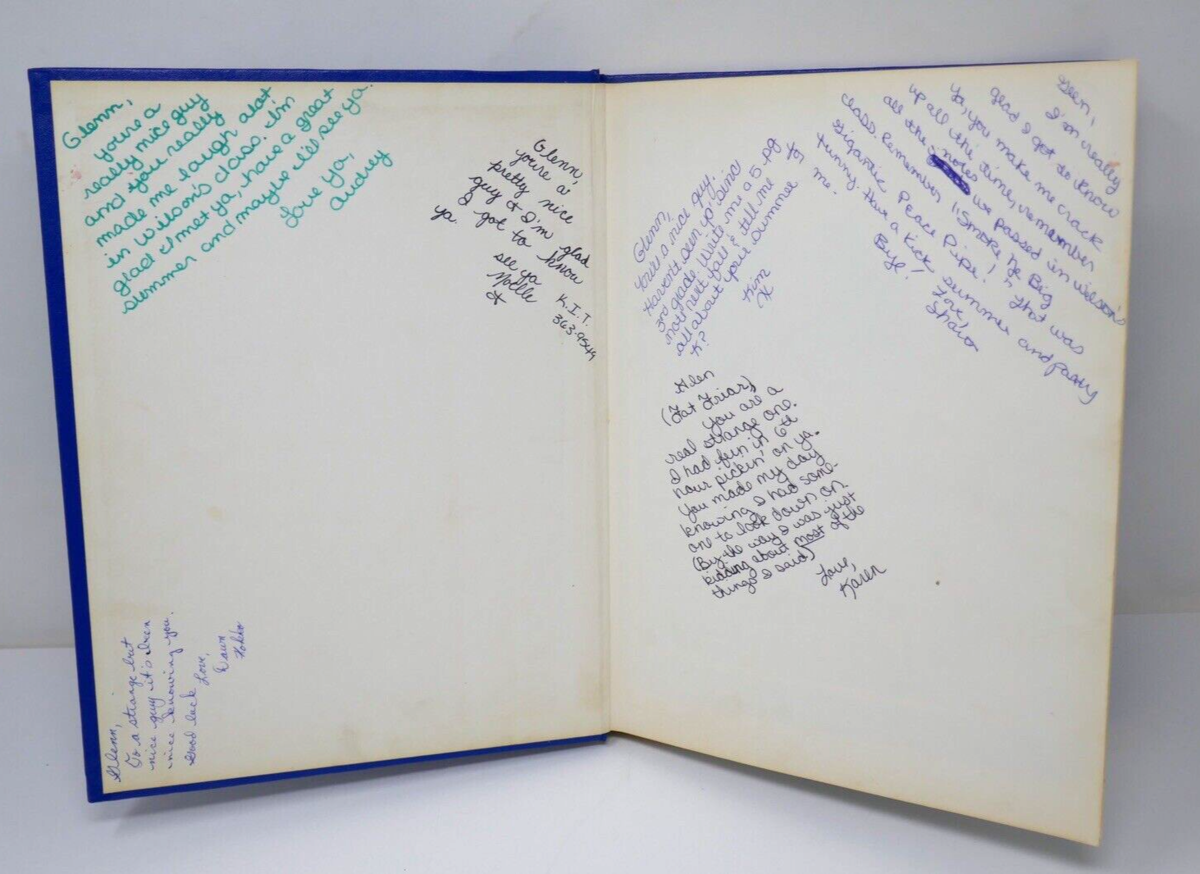 Glenn,
you're a
really nice guy
and you really
made me laugh alot
in Wilson's class. I'm
glad I met ya, have a great
summer and maybe I'll see ya.
Love ya,
Audrey
Glenn,
you're a
pretty nice
guy & I'm glad
I got to know
ya.
see ya
K.I.T.
363-9549
Glenn,
To a strange but
nice guy it's been
nice knowing you.
Good luck
Love,
Dawn
Glenn,
You're a nice guy.
Haven't seen ya since
3rd grade. Write me a 5-pg
note next fall & tell me
all about your summer
K?
Kim
Glen,
I'm really
glad I got to know
Ya, you make me crack
up all the time, remember
all the notes we passed in Wilson's
class. Remember "Smoke the Big
Gigantic Peace Pipe!" That was
funny. Have a kick summer and party
for
me!
Bye!
Love,
Sharon
Glen
(Fat Friar)
You are a
real strange one.
I had fun in 6th
hour pickin' on ya.
You made my day
knowing I had some-
one to look down on.
(By the way I was just
kidding about most of the
things I said)
Love,
Karen